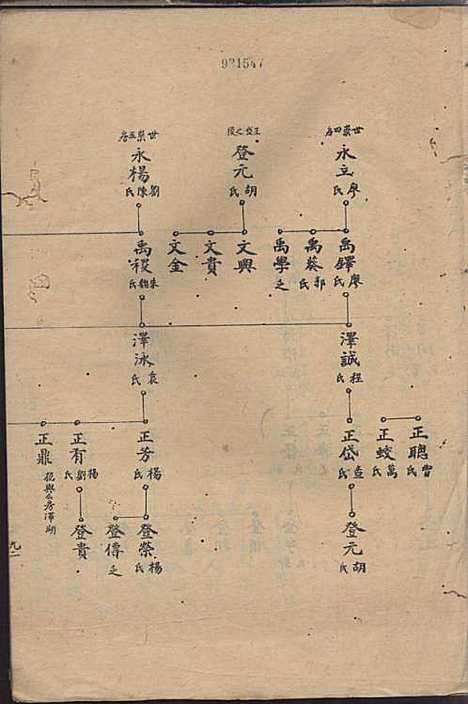 921547
世崇四房
永立 廖氏
禹鐸 廖氏
禹葵 郭氏
禹學 之
澤誠 程氏
正聰 曹氏
正蛟 萬氏
正岱 查氏
登元 胡氏
登元 胡氏
文興
文貴
文金
世崇五房
永楊 劉陳氏
禹稷
澤泳 袁氏
正芳 楊氏
正有 楊劉氏
正鼎
登榮 楊氏
登傳 之
登貴
九一